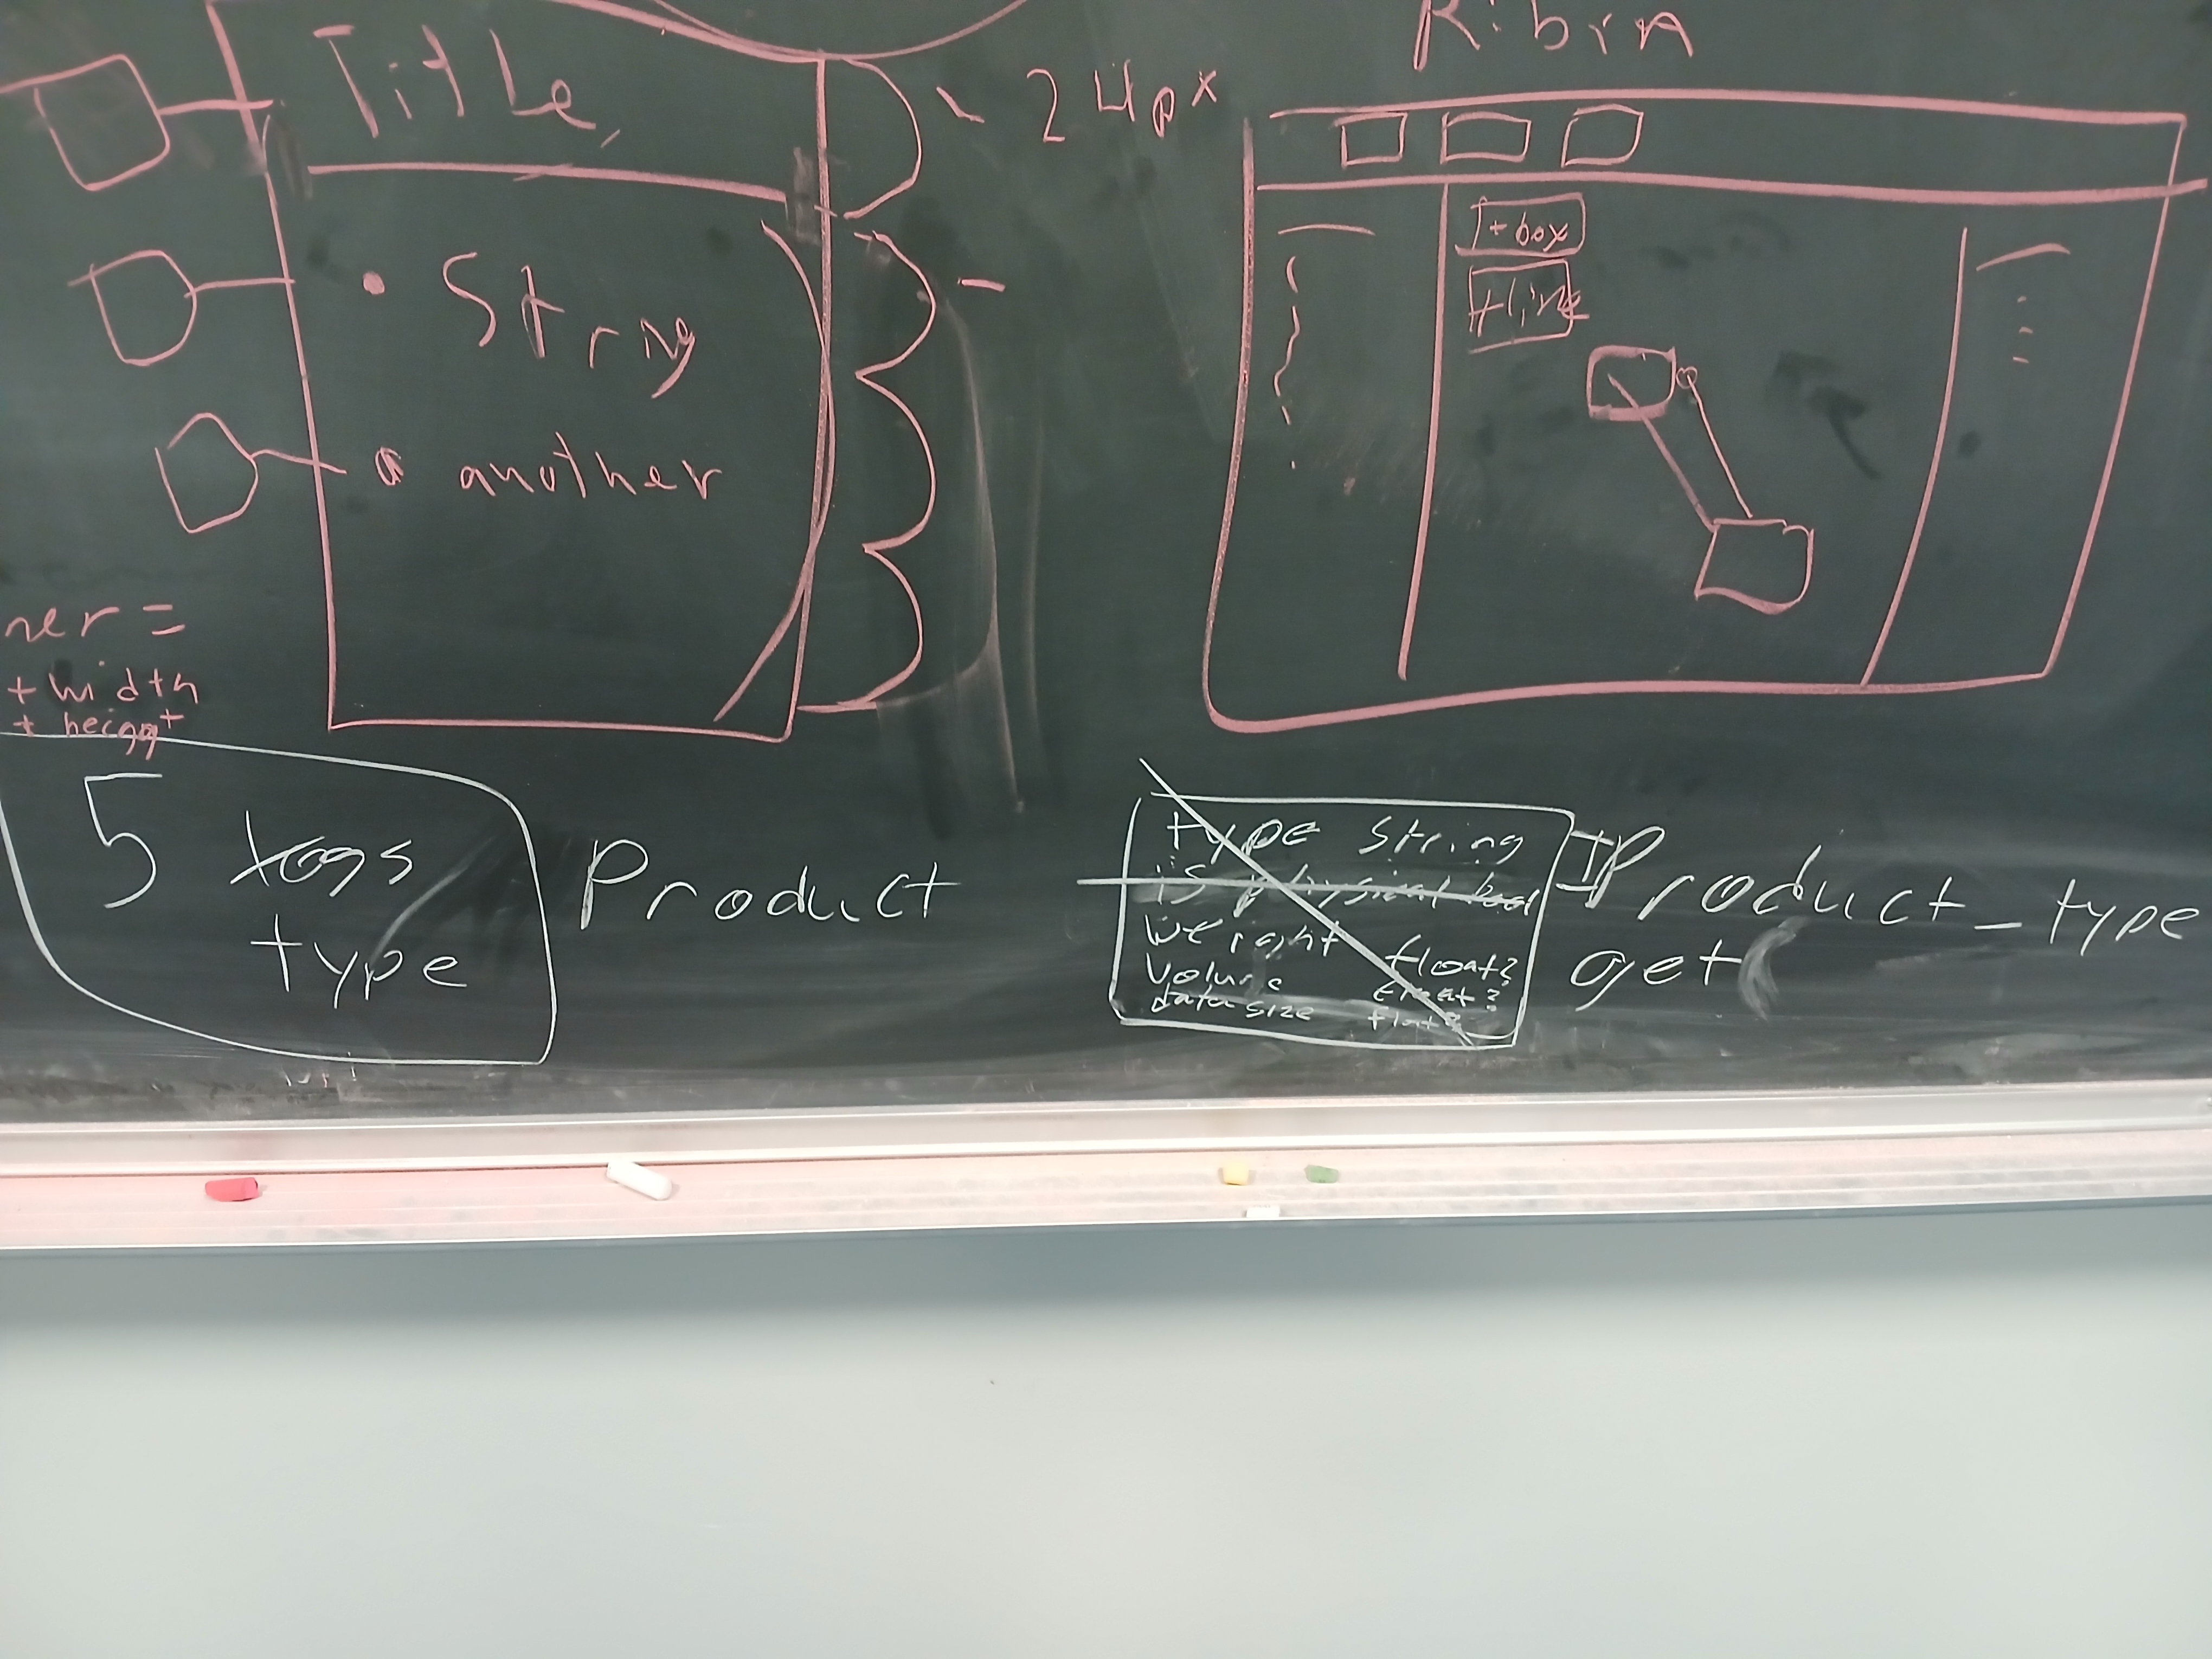 Title,
24px
• String
• another
ner =
+ width
+ height
Ribin
+ box
+ line
5 tags
type
Product
type String
is physical bool
weight float?
Volume float?
data size float?
IProduct_type
get(